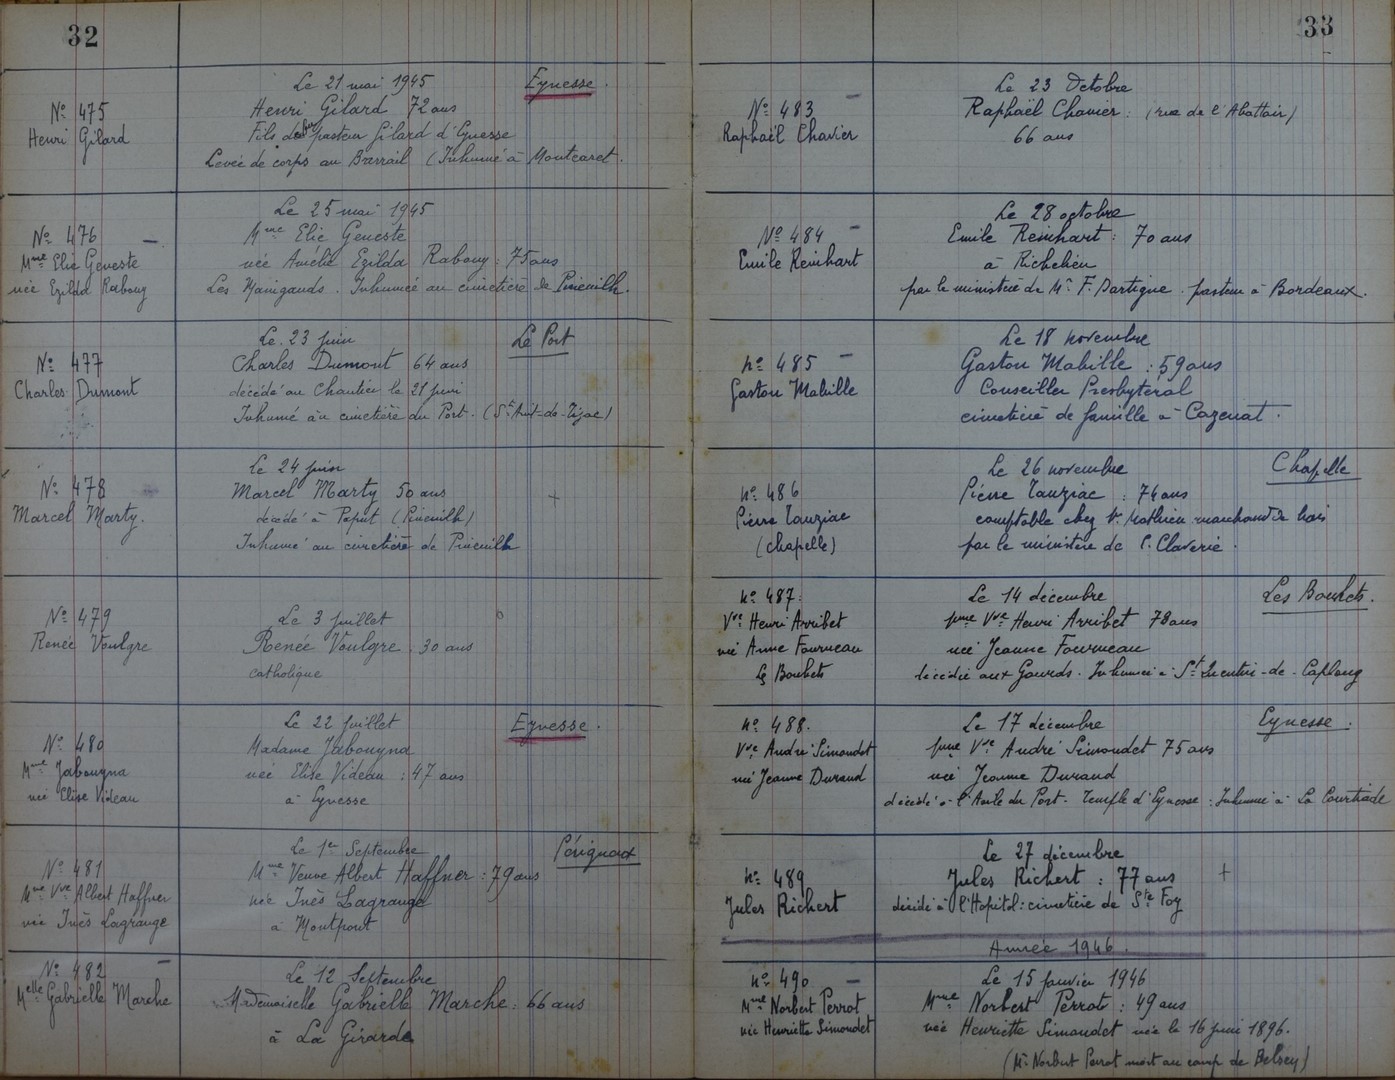 32
Le 21 mai 1945 Eynesse.
N° 475 Henri Gilard 72 ans
Henri Gilard Fils du pasteur Gilard d'Eynesse
Levée de corps au Barrail (Inhumé à Montcaret.
Le 25 mai 1945
N° 476 Mme Elie Geneste
Mme Elie Geneste née Amélie Ezilda Rabouy : 75 ans
née Ezilda Rabouy Les Mangauds. Inhumée au cimetière de Pineuilh.
Le 23 juin Le Port
N° 477 Charles Dumont 64 ans
Charles Dumont décédé au Chantier le 21 juin
Inhumé au cimetière du Port. (St Avit-de-Tizac)
Le 24 juin
N° 478 Marcel Marty 50 ans
Marcel Marty. décédé à Paput (Pineuilh)
Inhumé au cimetière de Pineuilh
N° 479 Le 3 juillet
Renée Voulgre Renée Voulgre. 30 ans
catholique
Le 22 juillet Eynesse.
N° 480 Madame Jabouyna
Mme Jabouyna née Elise Videau : 47 ans
née Elise Videau à Eynesse
Le 1er Septembre Pérignac
N° 481 Mme Veuve Albert Haffner : 79 ans
Mme Vve Albert Haffner née Inès Lagrange
née Inès Lagrange à Montpont
N° 482 Le 12 Septembre
Melle Gabrielle Marche Mademoiselle Gabrielle Marche : 66 ans
à La Girarde
33
Le 23 Octobre
N° 483 Raphaël Chavier : (rue de l'Abattoir)
Raphaël Chavier 66 ans
Le 28 octobre
N° 484 Emile Reinhart : 70 ans
Emile Reinhart à Richelieu
par le ministère de Mr F. Dartigue. pasteur à Bordeaux.
Le 18 novembre
N° 485 Gaston Mabille : 59 ans
Gaston Mabille Conseiller Presbytéral
cimetière de famille à Cazenat.
Le 26 novembre Chapelle
N° 486 Pierre Tauziac : 74 ans
Pierre Tauziac comptable chez Mathieu marchand de bois
(chapelle) par le ministère de Claverie.
N° 487. Le 14 décembre Les Bouhets.
Vve Henri Arribet Mme Vve Henri Arribet 78 ans
née Anne Fourneau née Jeanne Fourneau
Les Bouhets décédée aux Gourds. Inhumée à St Quentin-de-Caplong
N° 488. Le 17 décembre Eynesse.
Vve André Simondet Mme Vve André Simondet 75 ans
née Jeanne Durand née Jeanne Durand
décédée à l'Asile du Port. Temple d'Eynesse. Inhumée à La Courtiade
Le 27 décembre
N° 489 Jules Richert : 77 ans
Jules Richert décédé à l'Hôpital : cimetière de Ste Foy
Année 1946.
N° 490 Le 15 janvier 1946
Mme Norbert Perrot Mme Norbert Perrot : 49 ans
née Henriette Simondet née Henriette Simondet née le 16 juin 1896.
(Mr Norbert Perrot mort au camp de Belsen)